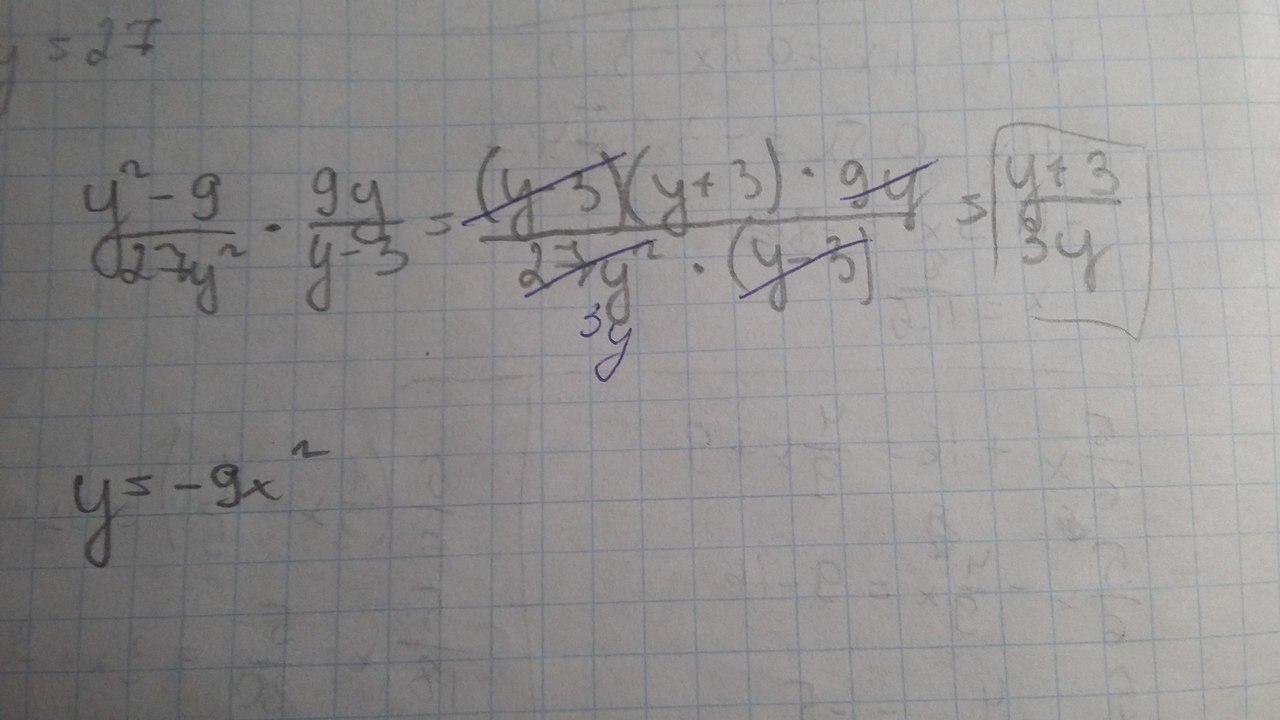 y = 27
y² - 9 / 27y² · 9y / y - 3 = (y - 3)(y + 3) · 9y / 27y² · (y - 3) = y + 3 / 3y
3y
y = -9x²